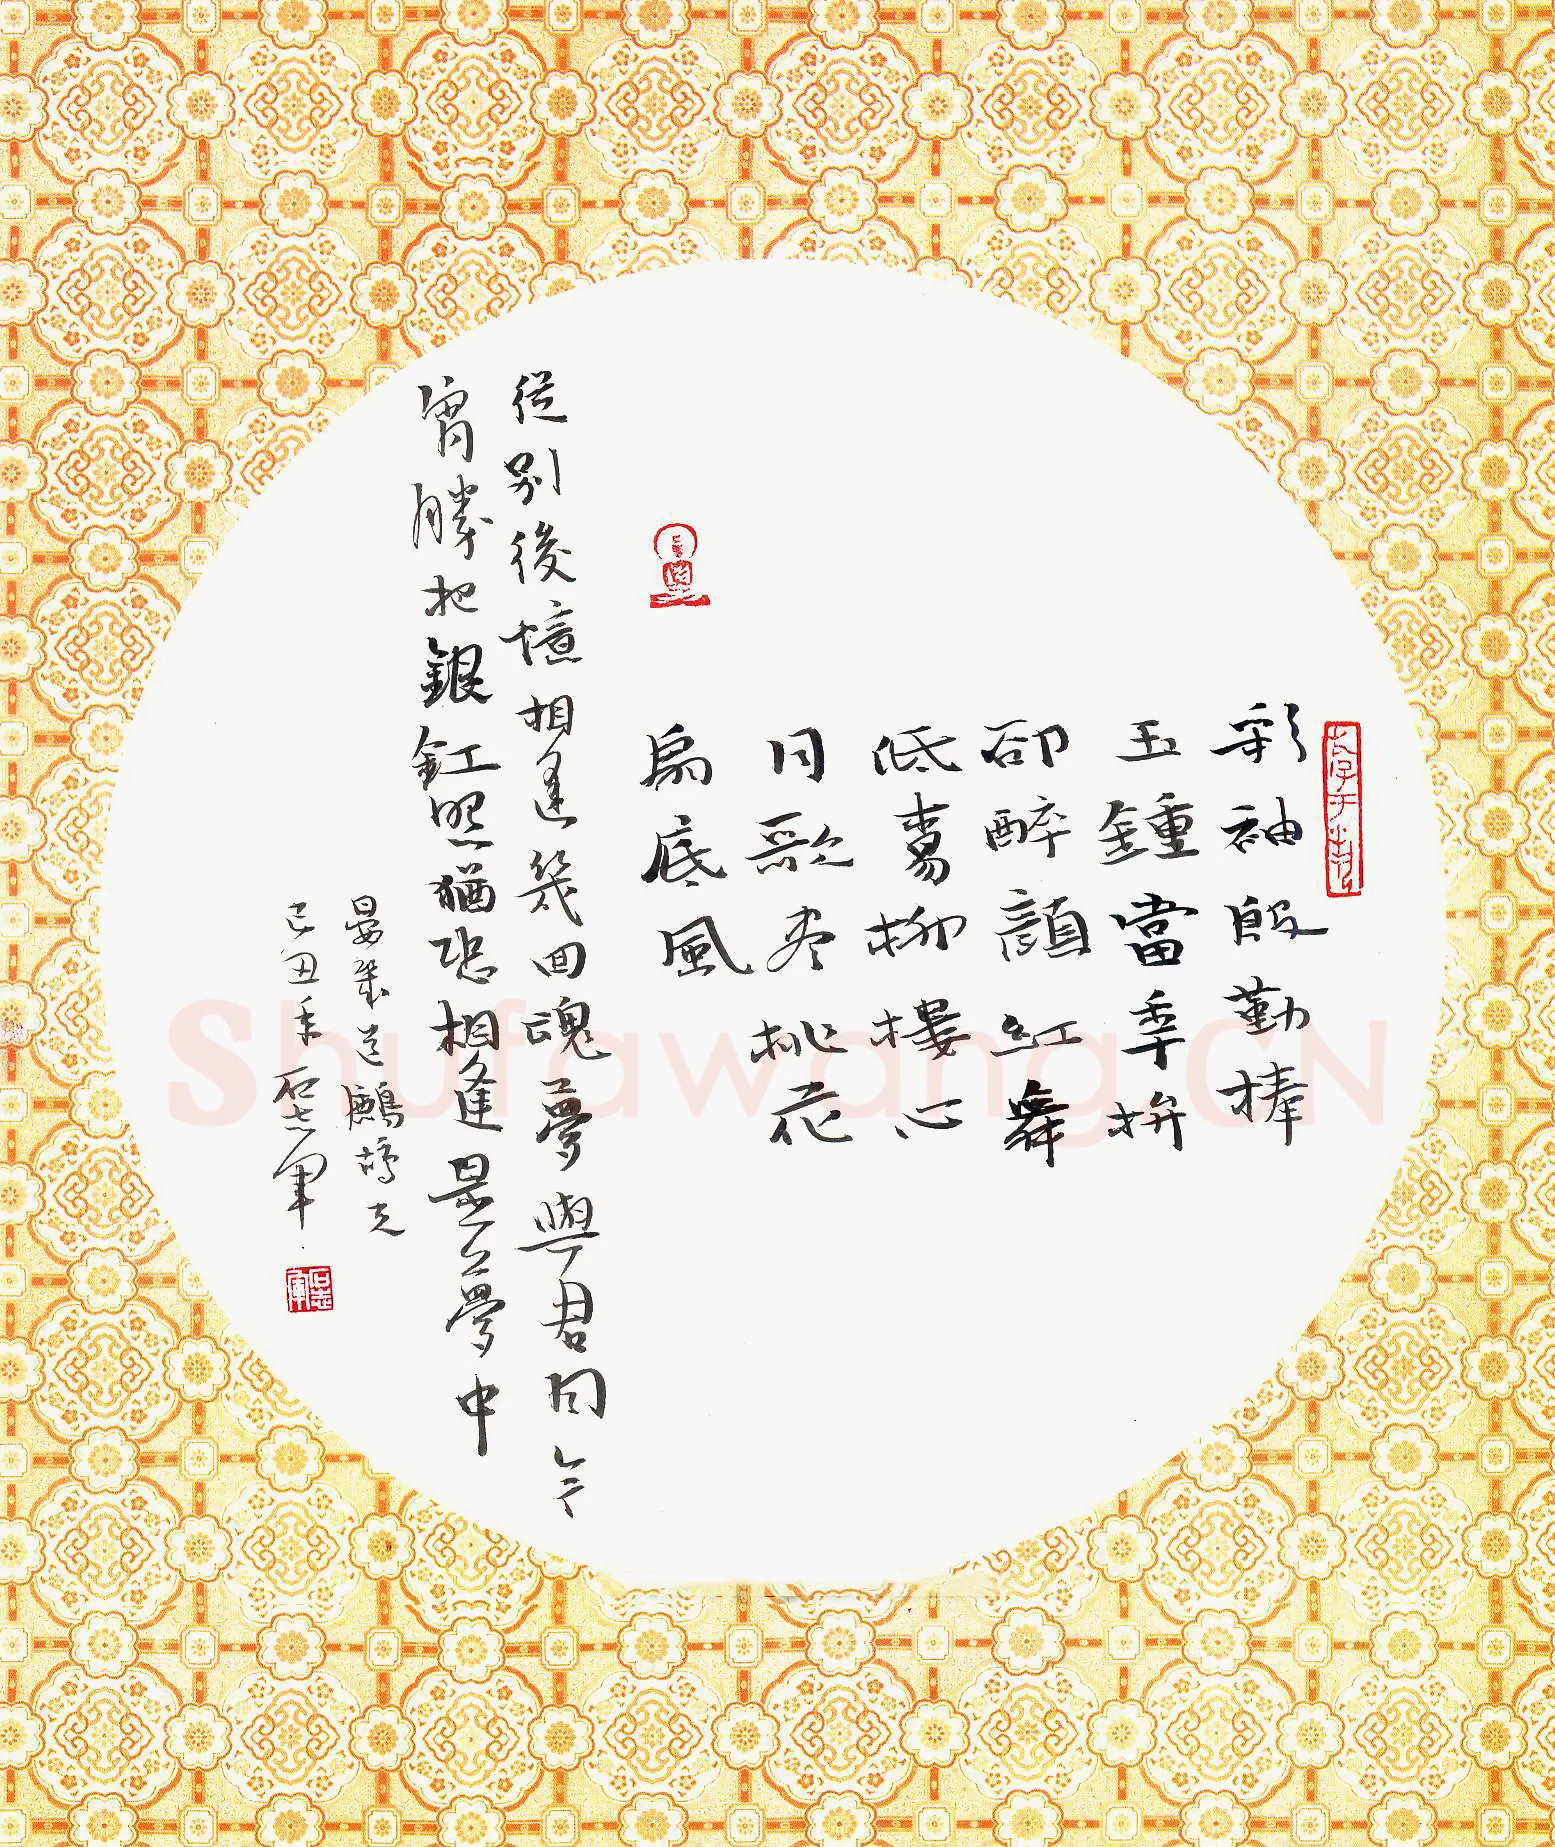 彩袖殷勤捧
玉鍾當年拚
卻醉顏紅舞
低楊柳樓心
月歌尽桃花
扇底風
從別後憶相逢幾回魂夢與君同今
宵勝把銀釭照猶恐相逢是夢中
晏幾道鷓鴣天
己丑年石志军
石志军
Shufawang.CN